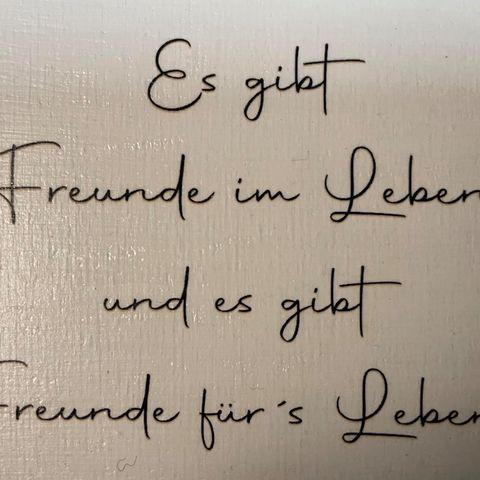 Es gibt
Freunde im Leben
und es gibt
Freunde für´s Leben